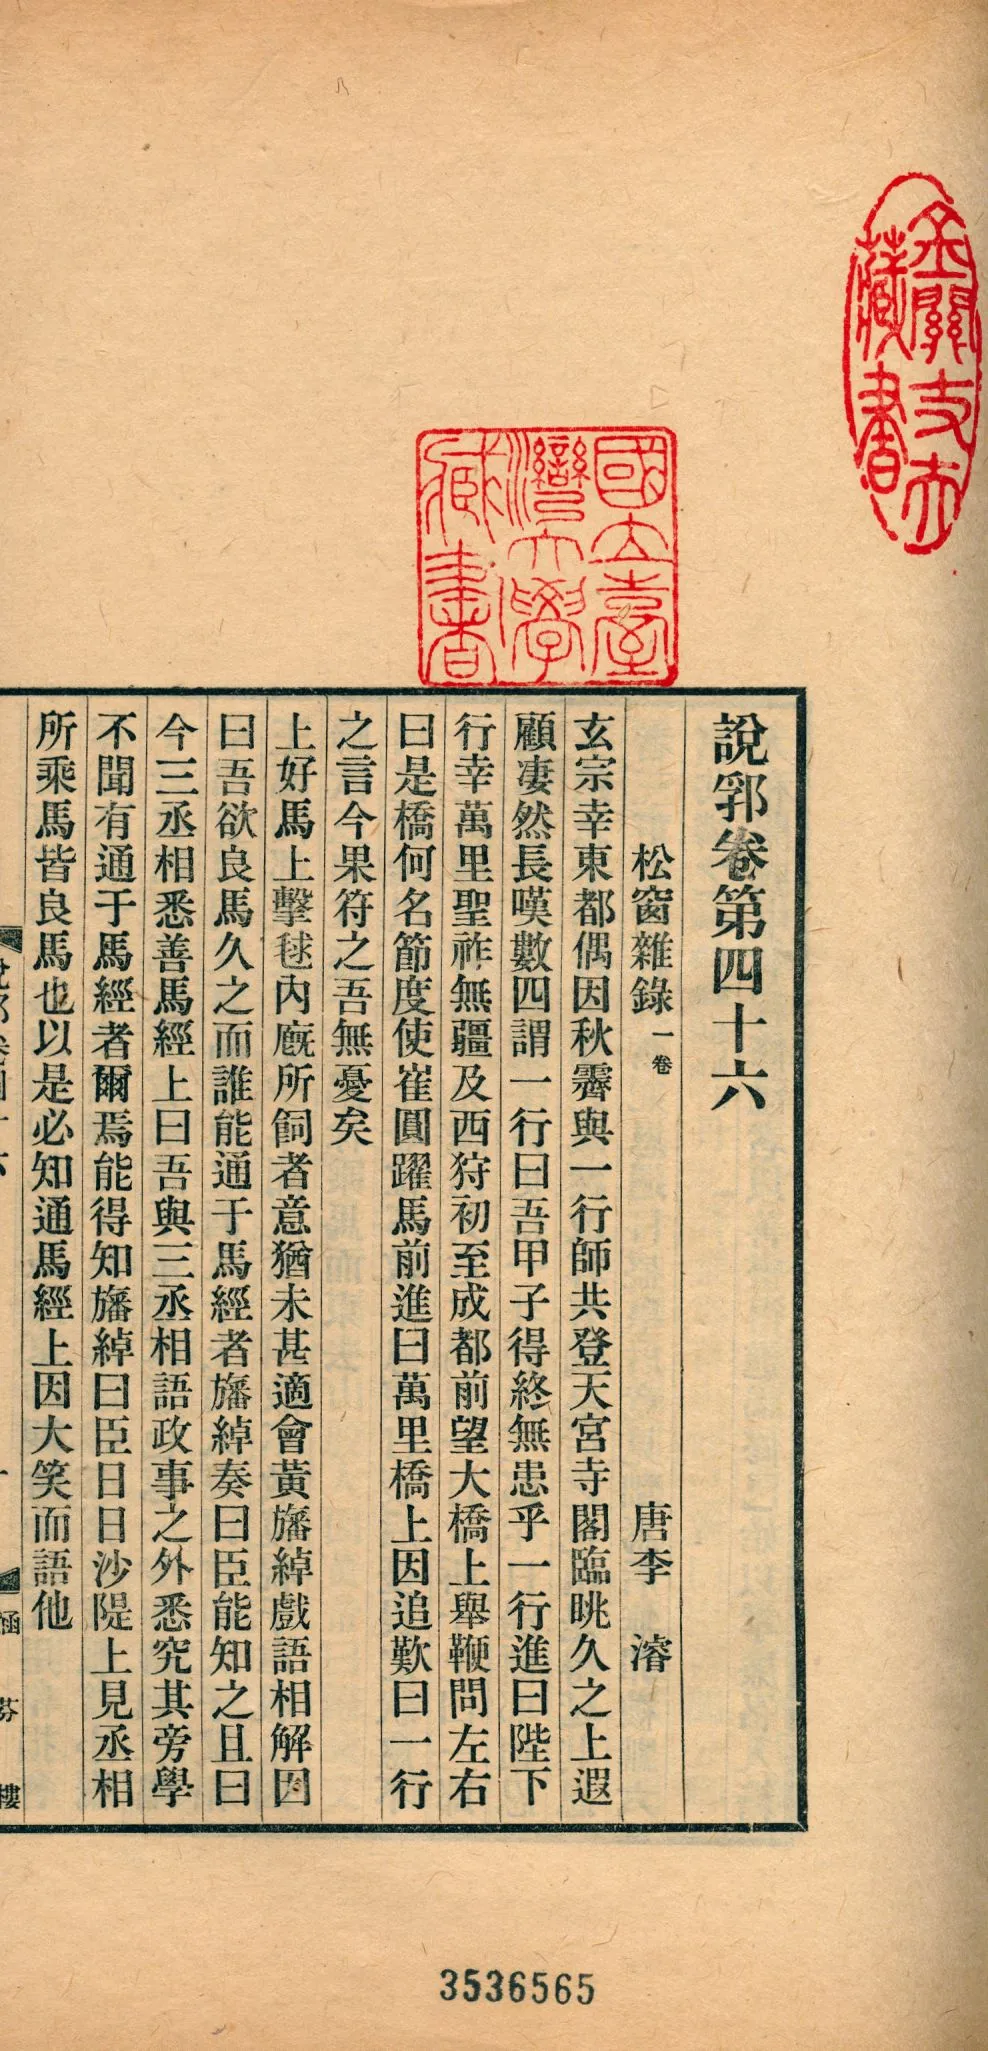 說郛卷第四十六
松窗雜錄一卷 唐李 濬
玄宗幸東都偶因秋霽與一行師共登天宮寺閣臨眺久之上遐
顧凄然長嘆數四謂一行曰吾甲子得終無患乎一行進曰陛下
行幸萬里聖祚無疆及西狩初至成都前望大橋上舉鞭問左右
曰是橋何名節度使崔圓躍馬前進曰萬里橋上因追歎曰一行
之言今果符之吾無憂矣
上好馬上擊毬內廐所飼者意猶未甚適會黃旛綽戲語相解因
曰吾欲良馬久之而誰能通于馬經者旛綽奏曰臣能知之且曰
今三丞相悉善馬經上曰吾與三丞相語政事之外悉究其旁學
不聞有通于馬經者爾焉能得知旛綽曰臣日日沙隄上見丞相
所乘馬皆良馬也以是必知通馬經上因大笑而語他
涵芬樓
國立臺
灣大學
藏書
藏書
3536565